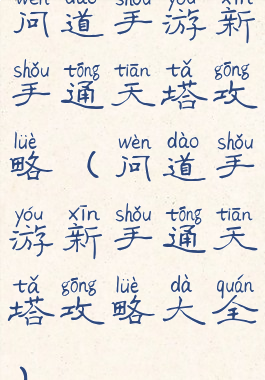 wèn dào shǒu yóu xīn
问道手游新
shǒu tōng tiān tǎ gōng
手通天塔攻
lüè wèn dào shǒu
略（问道手
yóu xīn shǒu tōng tiān
游新手通天
tǎ gōng lüè dà quán
塔攻略大全
）